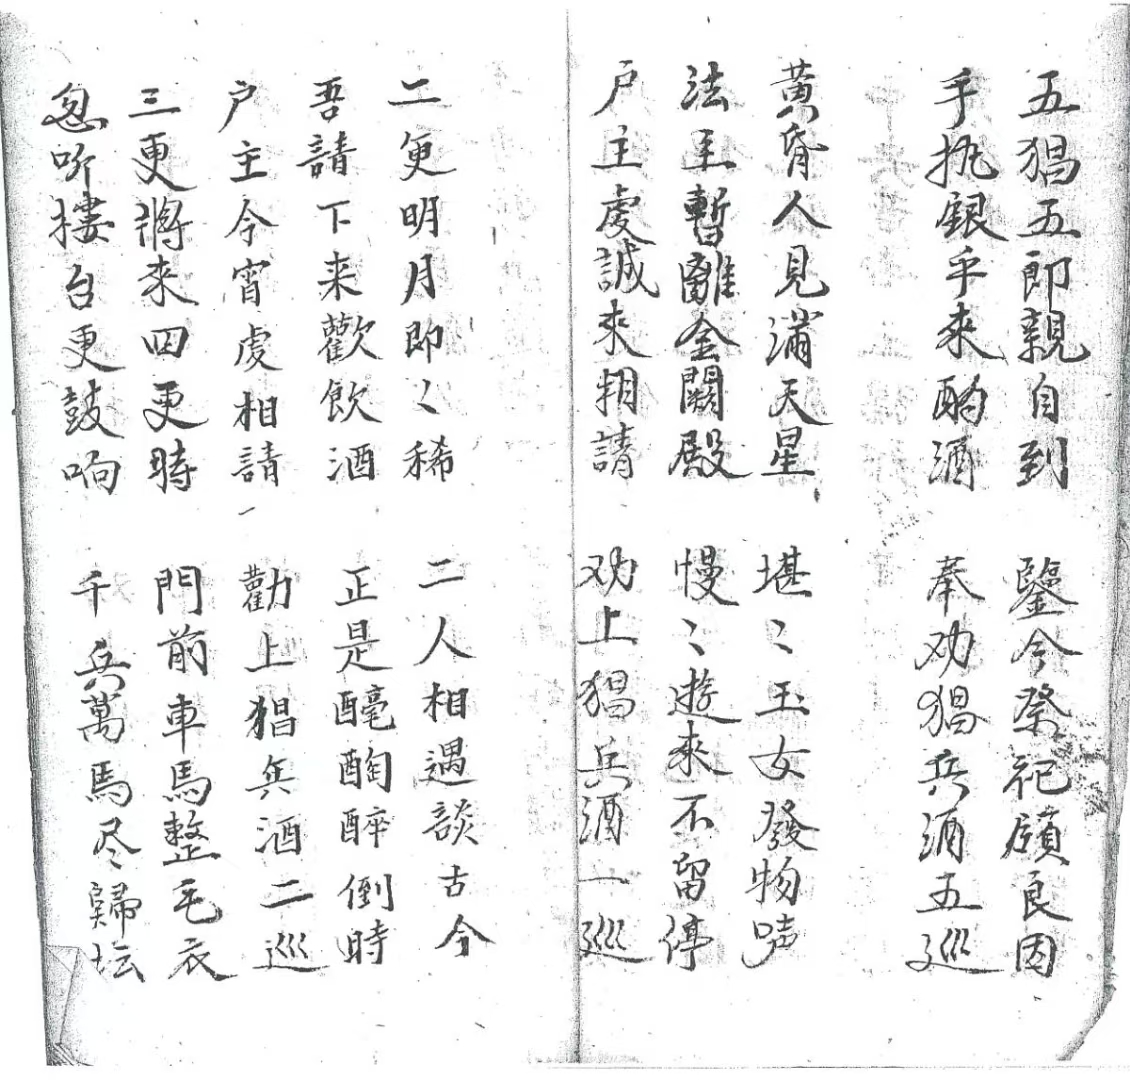 五猖五郎親自到　鑒今祭祀領良因
手执銀乎來酌酒　奉劝猖兵酒五巡
黄昏人見滿天星　堪〻玉女發物声
法主暫離金闕殿　慢〻遊來不留停
户主虔誠來相請　劝上猖兵酒一巡
二更明月即〻稀　二人相遇談古今
吾請下来歡飲酒　正是酕酶醉倒時
户主今宵虔相請　勸上猖兵酒二巡
三更將來四更時　門前車馬整毛衣
忽听樓台更鼓响　千兵萬馬尽歸坛